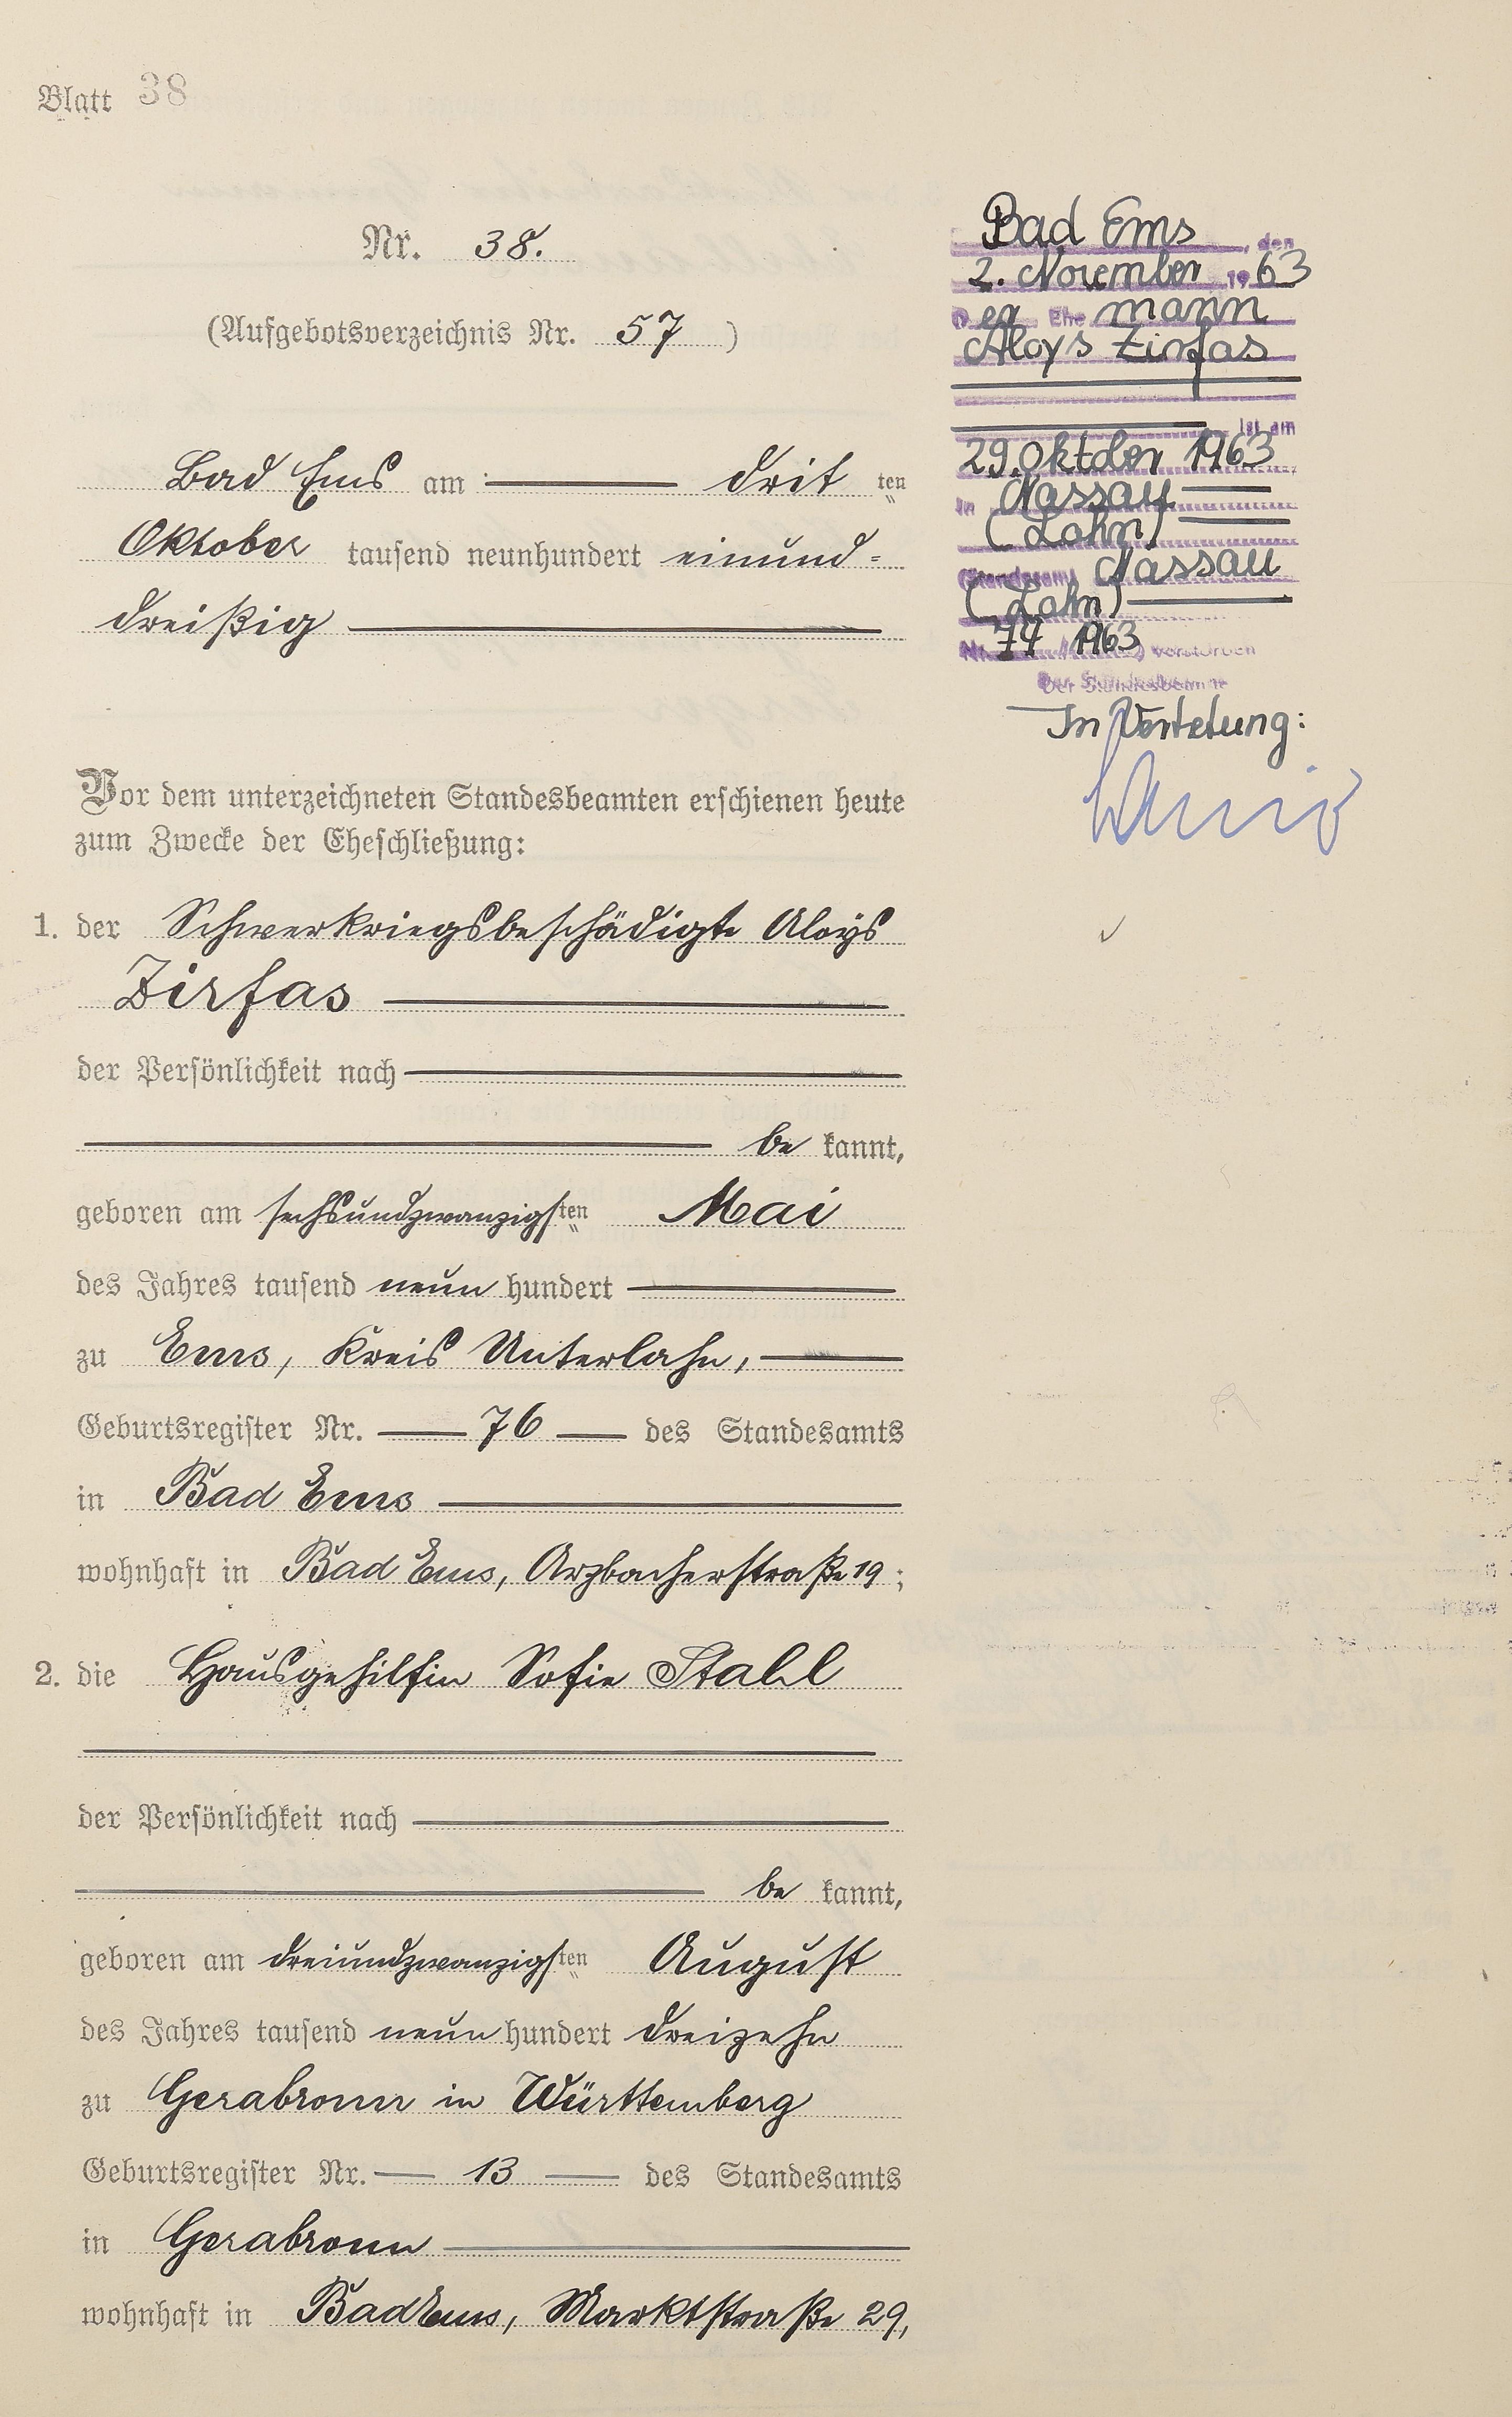 Blatt 38
Nr. 38.
(Aufgebotsverzeichnis Nr. 57)
Bad Ems am drit ten
Oktober tausend neunhundert einund=
dreißig
Vor dem unterzeichneten Standesbeamten erschienen heute
zum Zwecke der Eheschließung:
1. der Schwerkriegsbeschädigte Aloys
Zirfas
der Persönlichkeit nach
be kannt,
geboren am sechsundzwanzigsten Mai
des Jahres tausend neun hundert
zu Ems, Kreis Unterlahn,
Geburtsregister Nr. 76 des Standesamts
in Bad Ems
wohnhaft in Bad Ems, Arzbacherstraße 19;
2. die Hausgehilfin Sofie Stahl
der Persönlichkeit nach
be kannt,
geboren am dreiundzwanzigsten August
des Jahres tausend neun hundert dreizehn
zu Gerabronn in Württemberg
Geburtsregister Nr. 13 des Standesamts
in Gerabronn
wohnhaft in Bad Ems, Marktstraße 29,
Bad Ems, den
2. November 1963
Der Ehemann
Aloys Zirfas
ist am
29. Oktober 1963
in Nassau
(Lahn)
(Standesamt Nassau
(Lahn)
Nr. 74/1963) verstorben
Der Standesbeamte
In Vertretung: